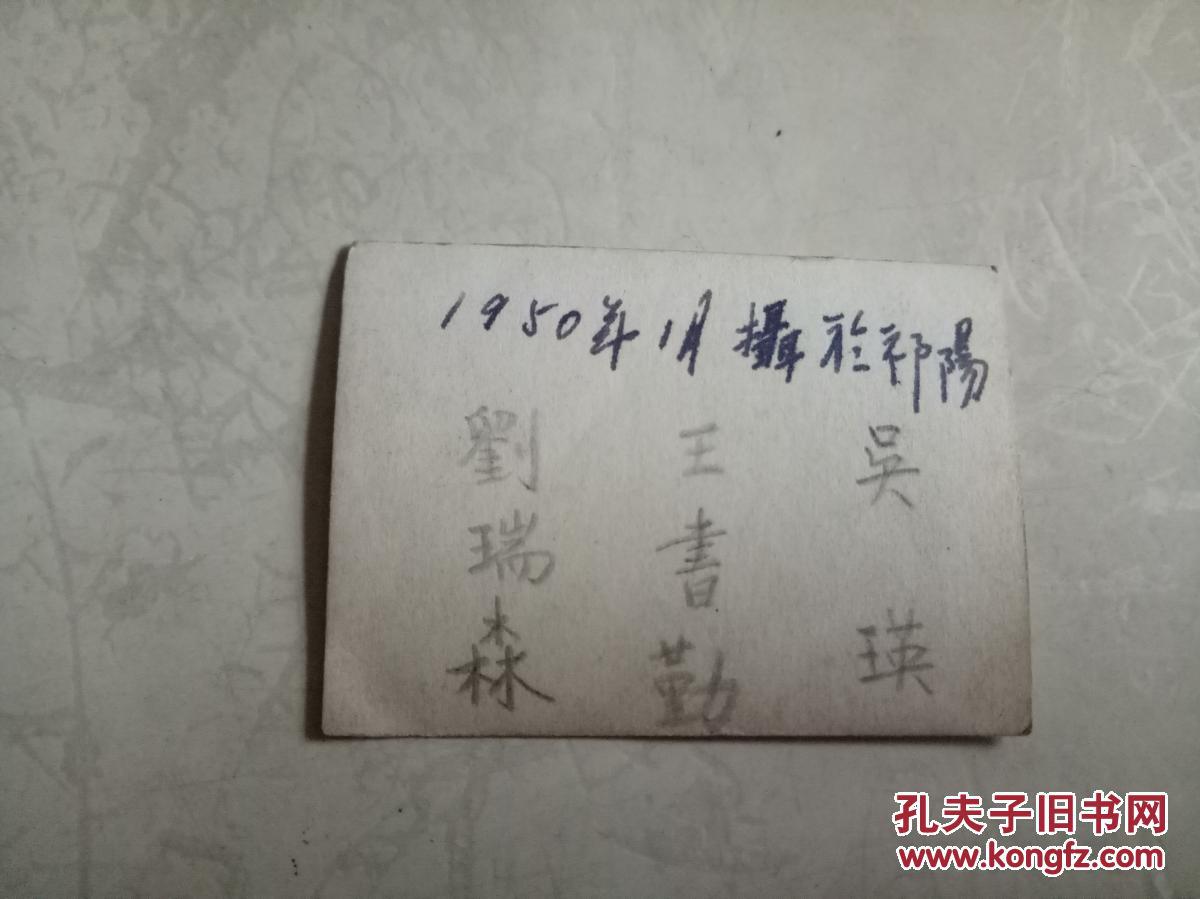 1950年1月攝於祁陽
吳瑛
王書勤
劉瑞森
孔夫子旧书网
www.kongfz.com